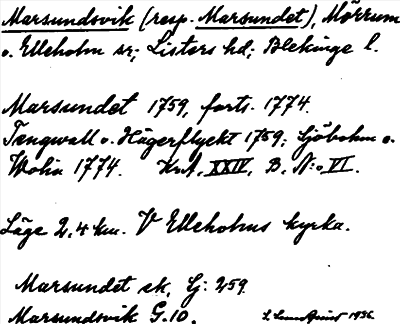 Marsundsvik (resp. Marsundet), Mörrum
o. Elleholm sn; Listers hd; Blekinge l.
Marsundet 1759, forts. 1774.
Tengwall o. Hägerflyckt 1759; Sjöbohm o.
Wolin 1774. KrA, XXIV, B, N:o VI.
Läge 2,4 km. V Elleholms kyrka.
Marsundet ek. G: 259
Marsundsvik G.10.
1936